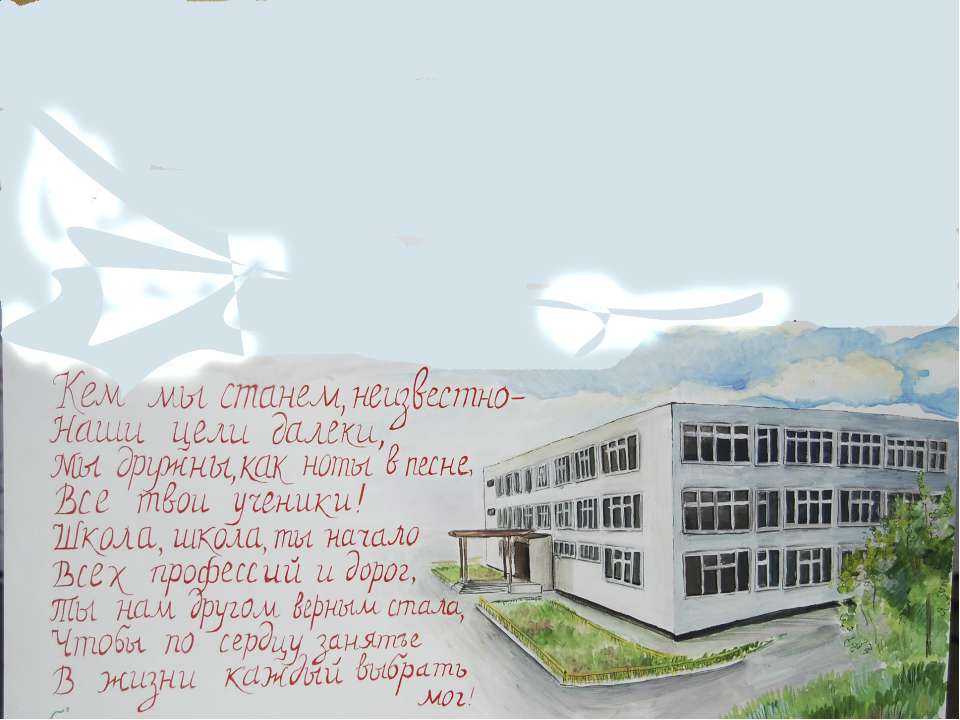 Кем мы станем, неизвестно-
Наши цели далеки,
Мы дружны, как ноты в песне,
Все твои ученики!
Школа, школа, ты начало
Всех профессий и дорог,
Ты нам другом верным стала,
Чтобы по сердцу занятье
В жизни каждый выбрать
мог!